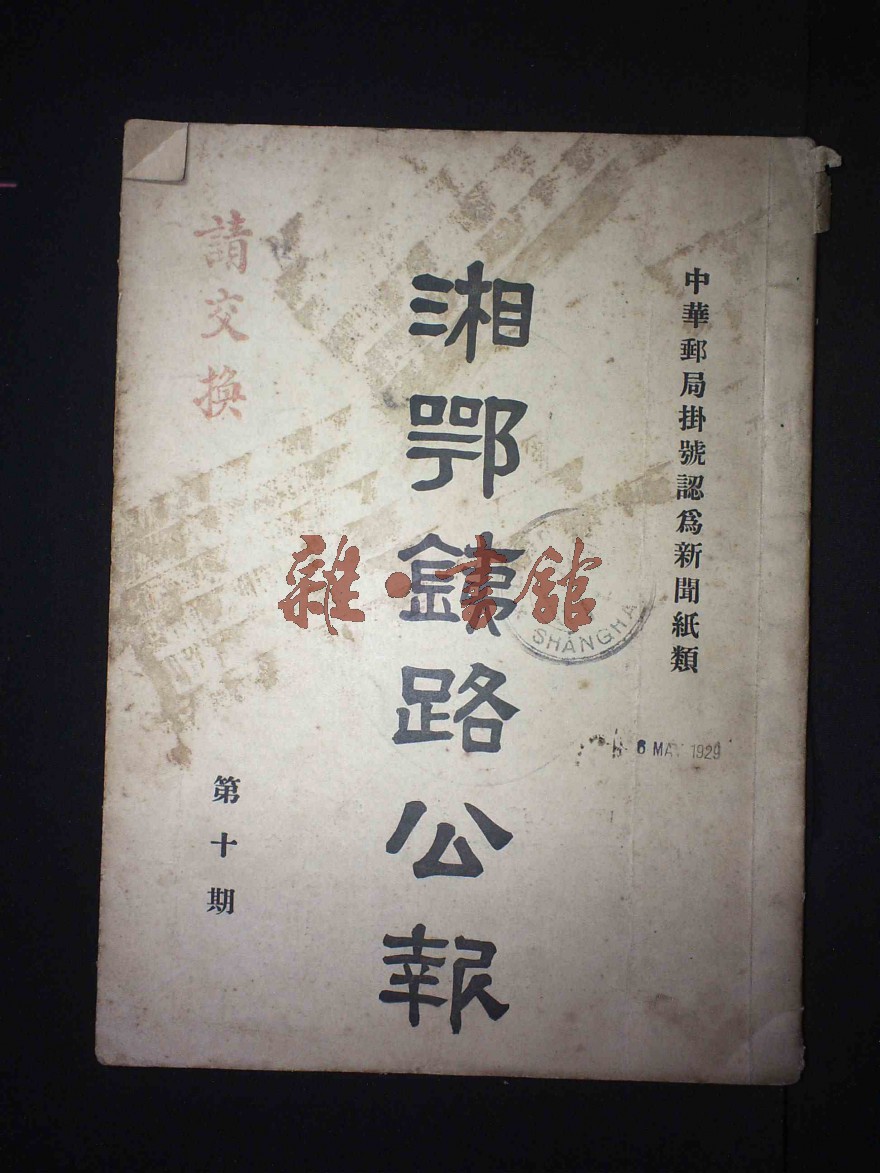 中華郵局掛號認爲新聞紙類
湘鄂鐵路公報
第十期
請交換
雜·書館
SHANGHA
6 MA 1929